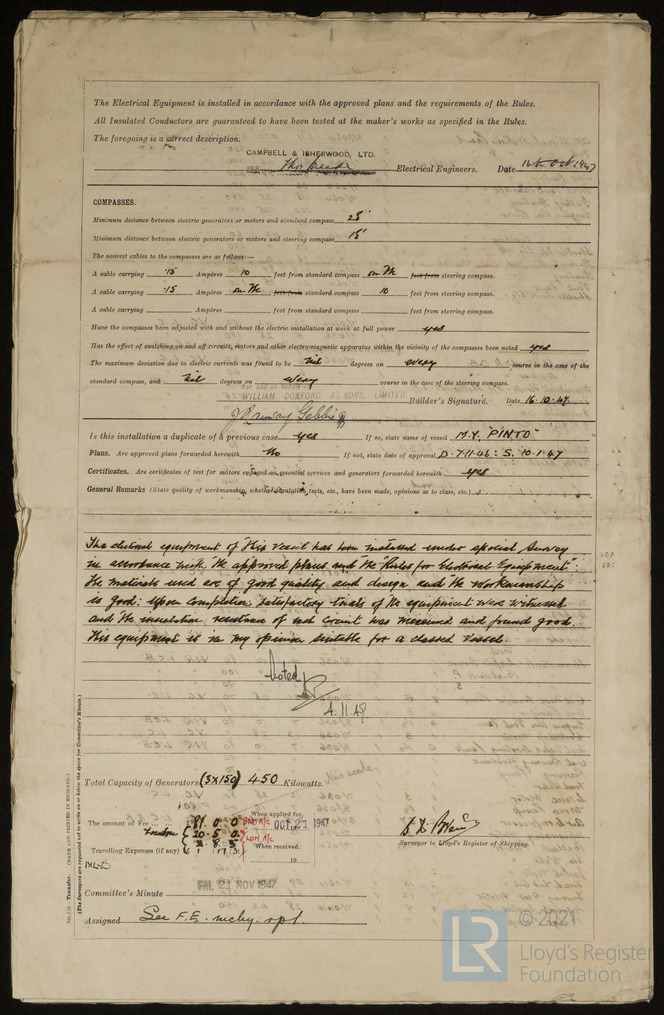 The Electrical Equipment is installed in accordance with the approved plans and the requirements of the Rules.
All Insulated Conductors are guaranteed to have been tested at the maker's works as specified in the Rules.
The foregoing is a correct description.
CAMPBELL & ISHERWOOD, LTD.
Electrical Engineers. Date 16th Oct 1947
COMPASSES.
Minimum distance between electric generators or motors and standard compass 25'
Minimum distance between electric generators or motors and steering compass 15'
The nearest cables to the compasses are as follows:—
A cable carrying .15 Ampères 10 feet from standard compass on the feet from steering compass.
A cable carrying .15 Ampères on the feet from standard compass 10 feet from steering compass.
A cable carrying Ampères feet from standard compass feet from steering compass.
Have the compasses been adjusted with and without the electric installation at work at full power yes
Has the effect of switching on and off circuits, motors and other electro-magnetic apparatus within the vicinity of the compasses been noted yes
The maximum deviation due to electric currents was found to be Nil degrees on every course in the case of the
standard compass, and Nil degrees on every course in the case of the steering compass.
For and on behalf of
WILLIAM DOXFORD & SONS, LIMITED
J Ramsay Gebbie Builder's Signature. Date 16.10.47
Is this installation a duplicate of a previous case yes If so, state name of vessel M.V. "PINTO"
Plans. Are approved plans forwarded herewith No If not, state date of approval D. 7.11.46 : S. 10.1.47
Certificates. Are certificates of test for motors engaged on essential services and generators forwarded herewith yes
General Remarks (State quality of workmanship, whether insulation tests, etc., have been made, opinions as to class, etc.)
The electrical equipment of this vessel has been installed under special survey
in accordance with the approved plans and the "Rules for Electrical Equipment".
The materials used are of good quality and design and the workmanship
is good. Upon completion satisfactory trials of the equipment were witnessed
and the insulation resistance of each circuit was measured and found good.
This equipment is in my opinion suitable for a classed vessel.
Noted
4.11.47
Total Capacity of Generators (3x150) 450 Kilowatts.
The amount of Fee £ 81. 0. 0
When applied for,
OCT 21 1947
London 20. 5. 0
LON A/c
Travelling Expenses (if any) £
When received.
19
Surveyor to Lloyd's Register of Shipping.
FRI. 21 NOV 1947
Committee's Minute
Assigned See F.E. mchy. rpt.
Transfer. (MADE AND PRINTED IN ENGLAND.)
(The Surveyors are requested not to write on or below the space for Committee's Minute.)
LR
© 2021
Lloyd's Register
Foundation